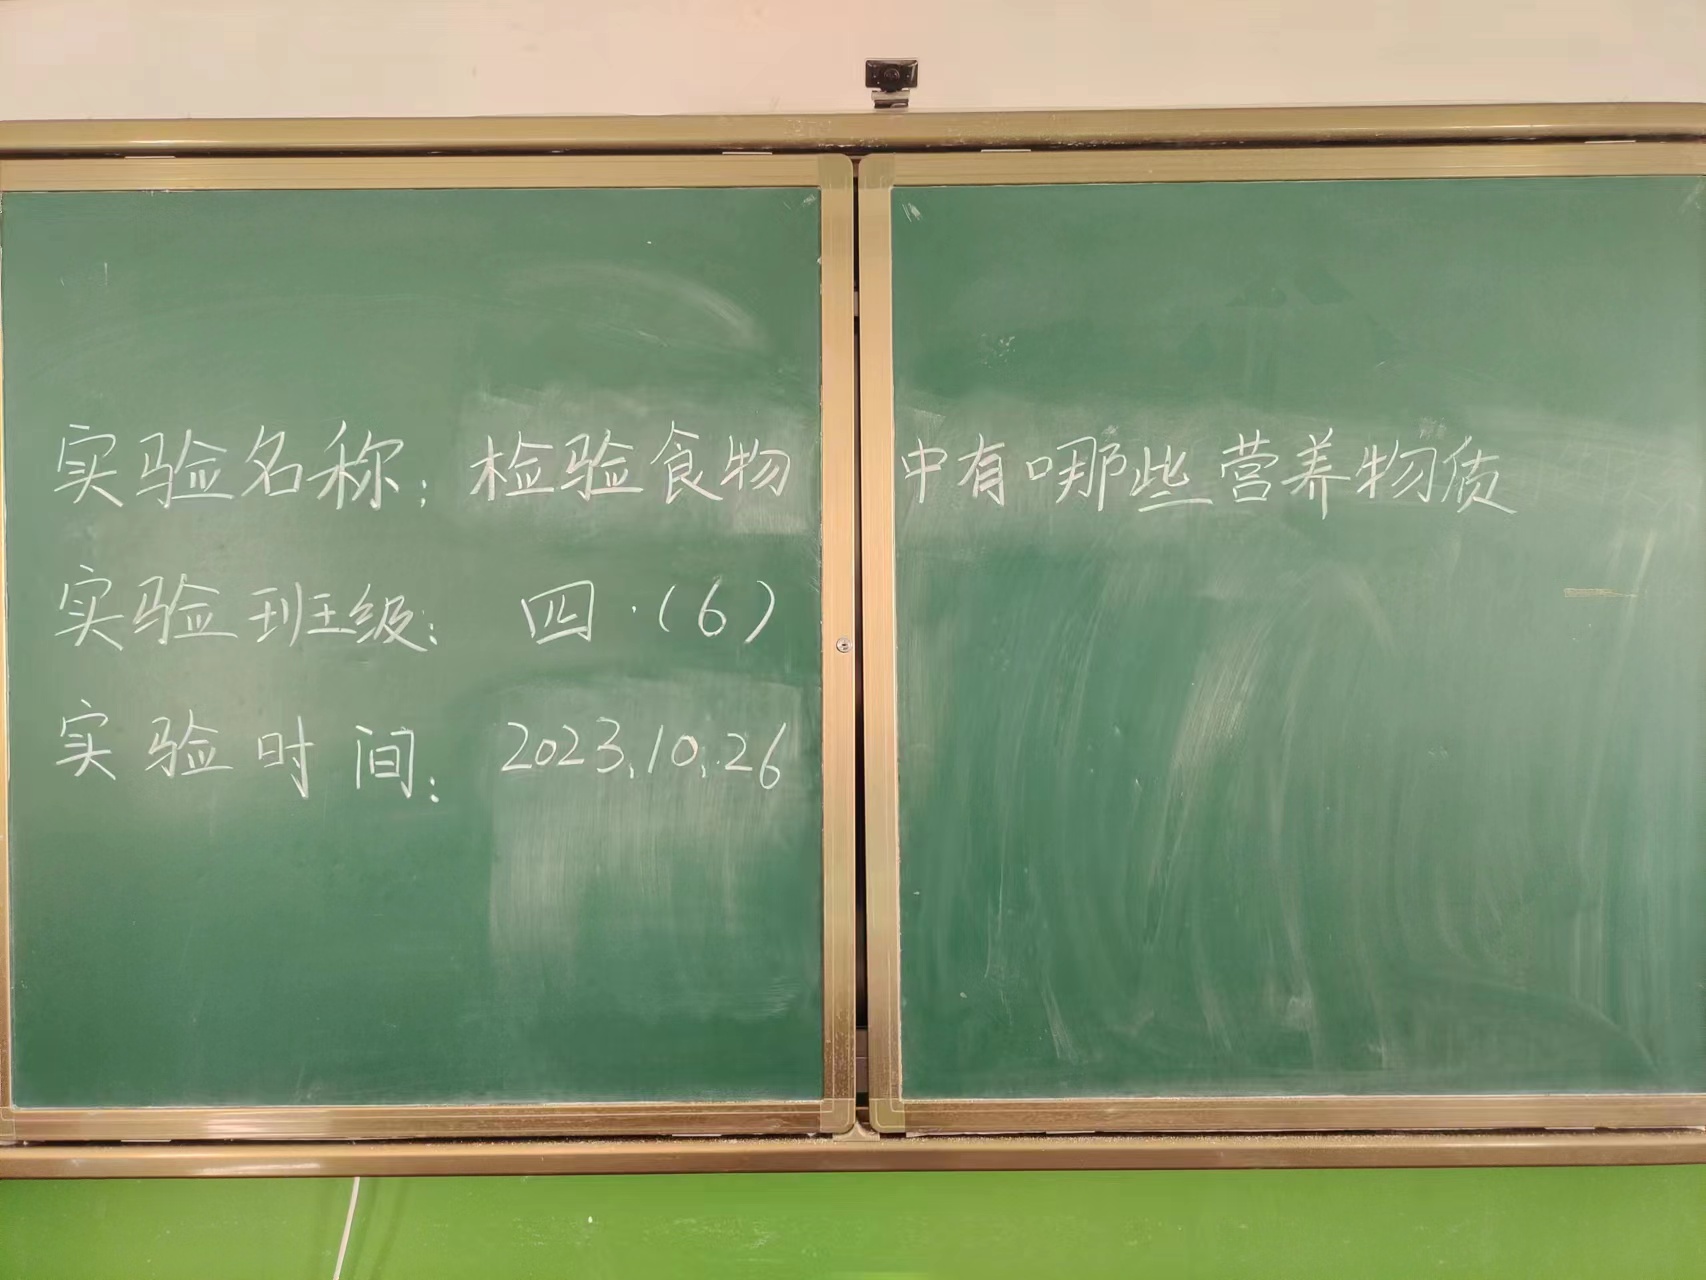 实验名称：检验食物中有哪些营养物质
实验班级：四·（6）
实验时间：2023.10.26